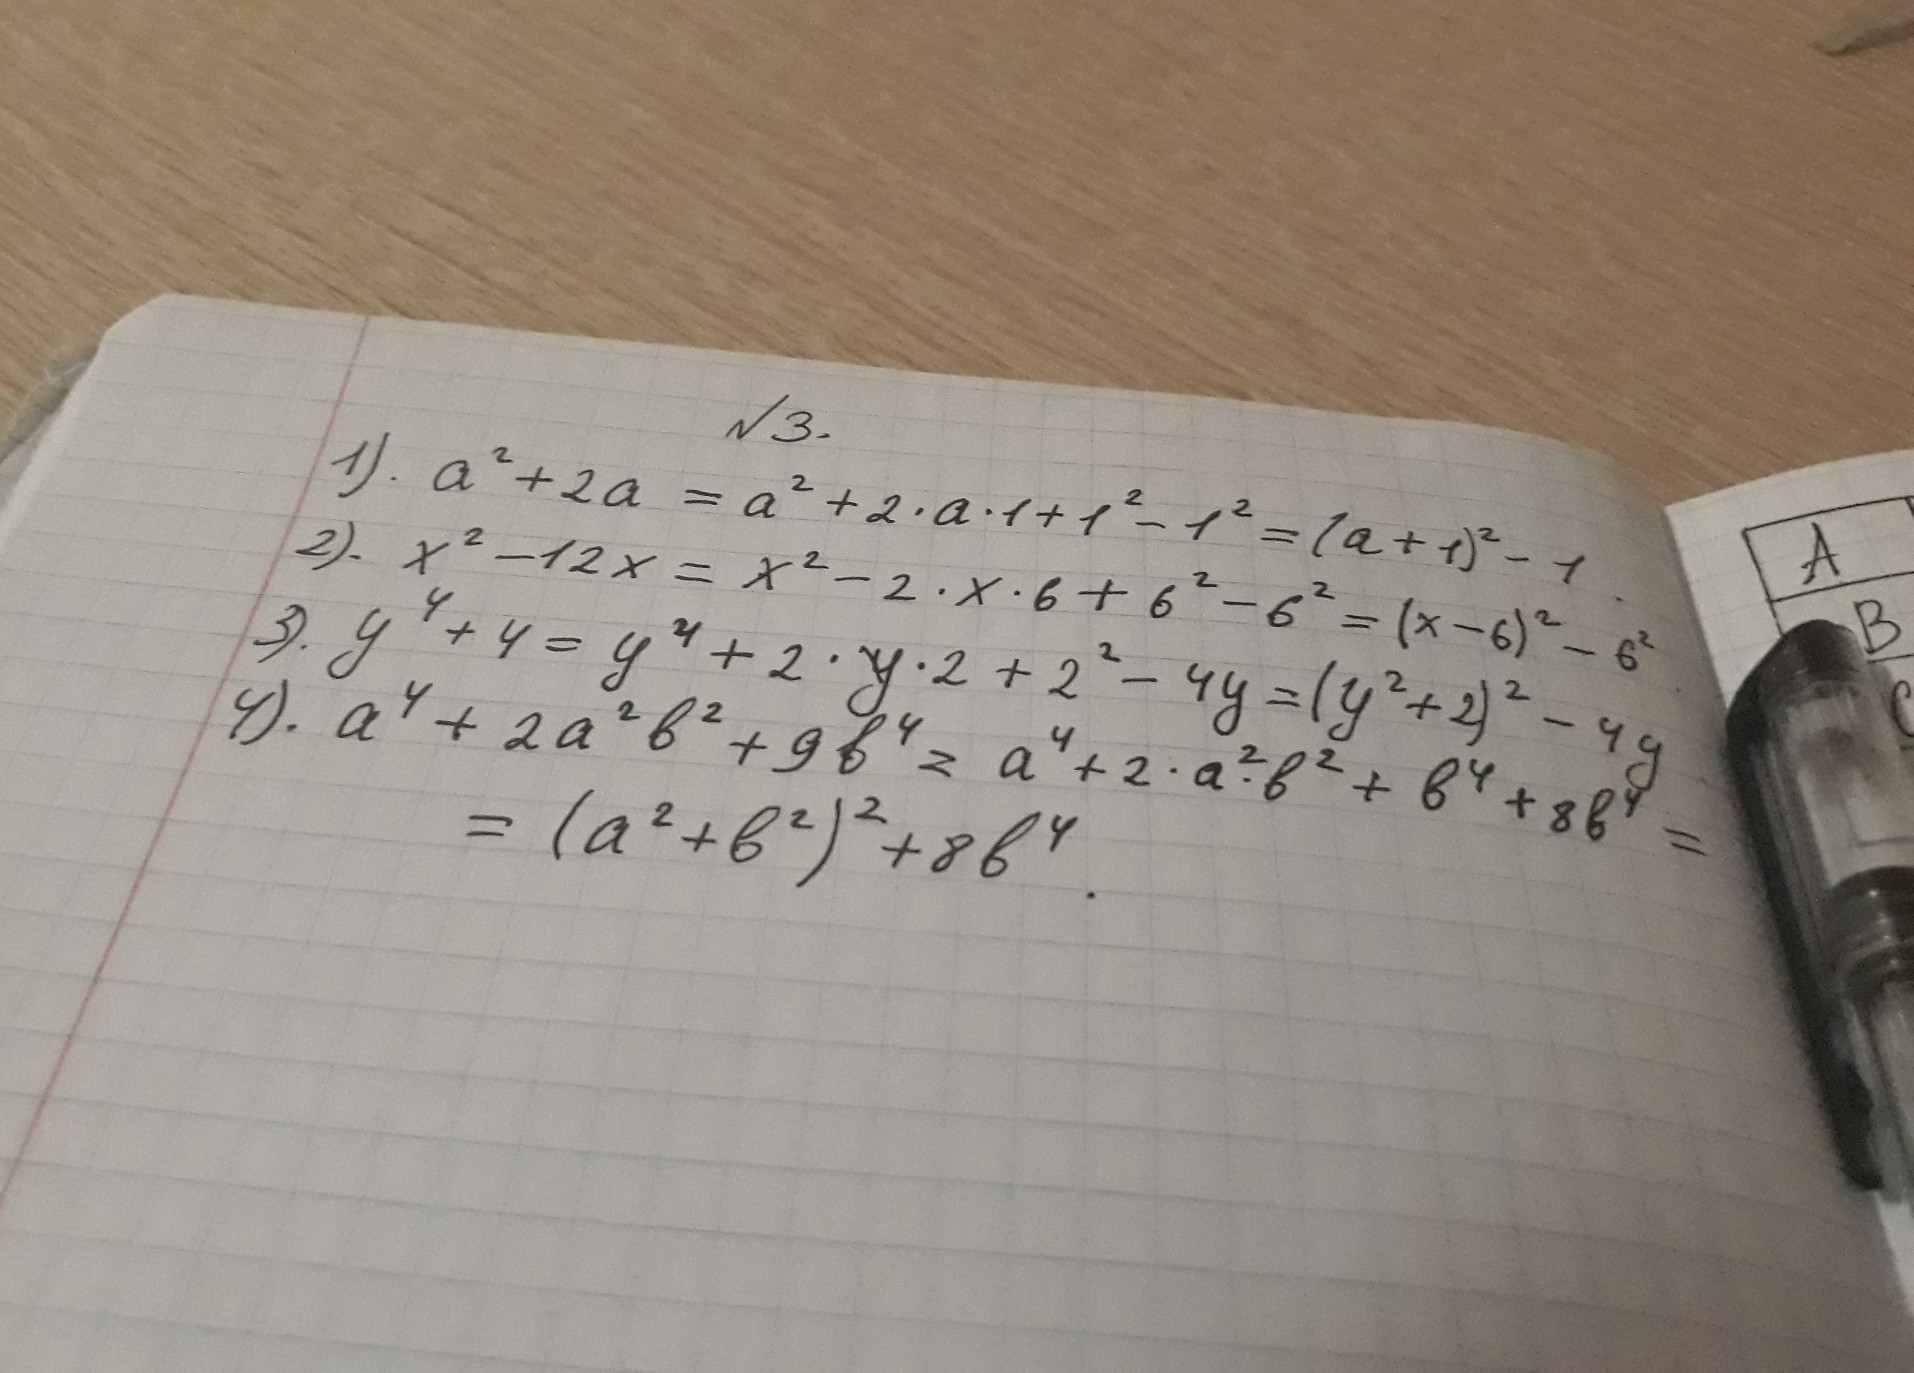 №3.
1). a² + 2a = a² + 2·a·1 + 1² - 1² = (a + 1)² - 1.
2). x² - 12x = x² - 2·x·6 + 6² - 6² = (x - 6)² - 6²
3). y⁴ + 4 = y⁴ + 2·y·2 + 2² - 4y = (y² + 2)² - 4y
4). a⁴ + 2a²b² + 9b⁴ = a⁴ + 2·a²·b² + b⁴ + 8b⁴ =
= (a² + b²)² + 8b⁴.
A
B
C